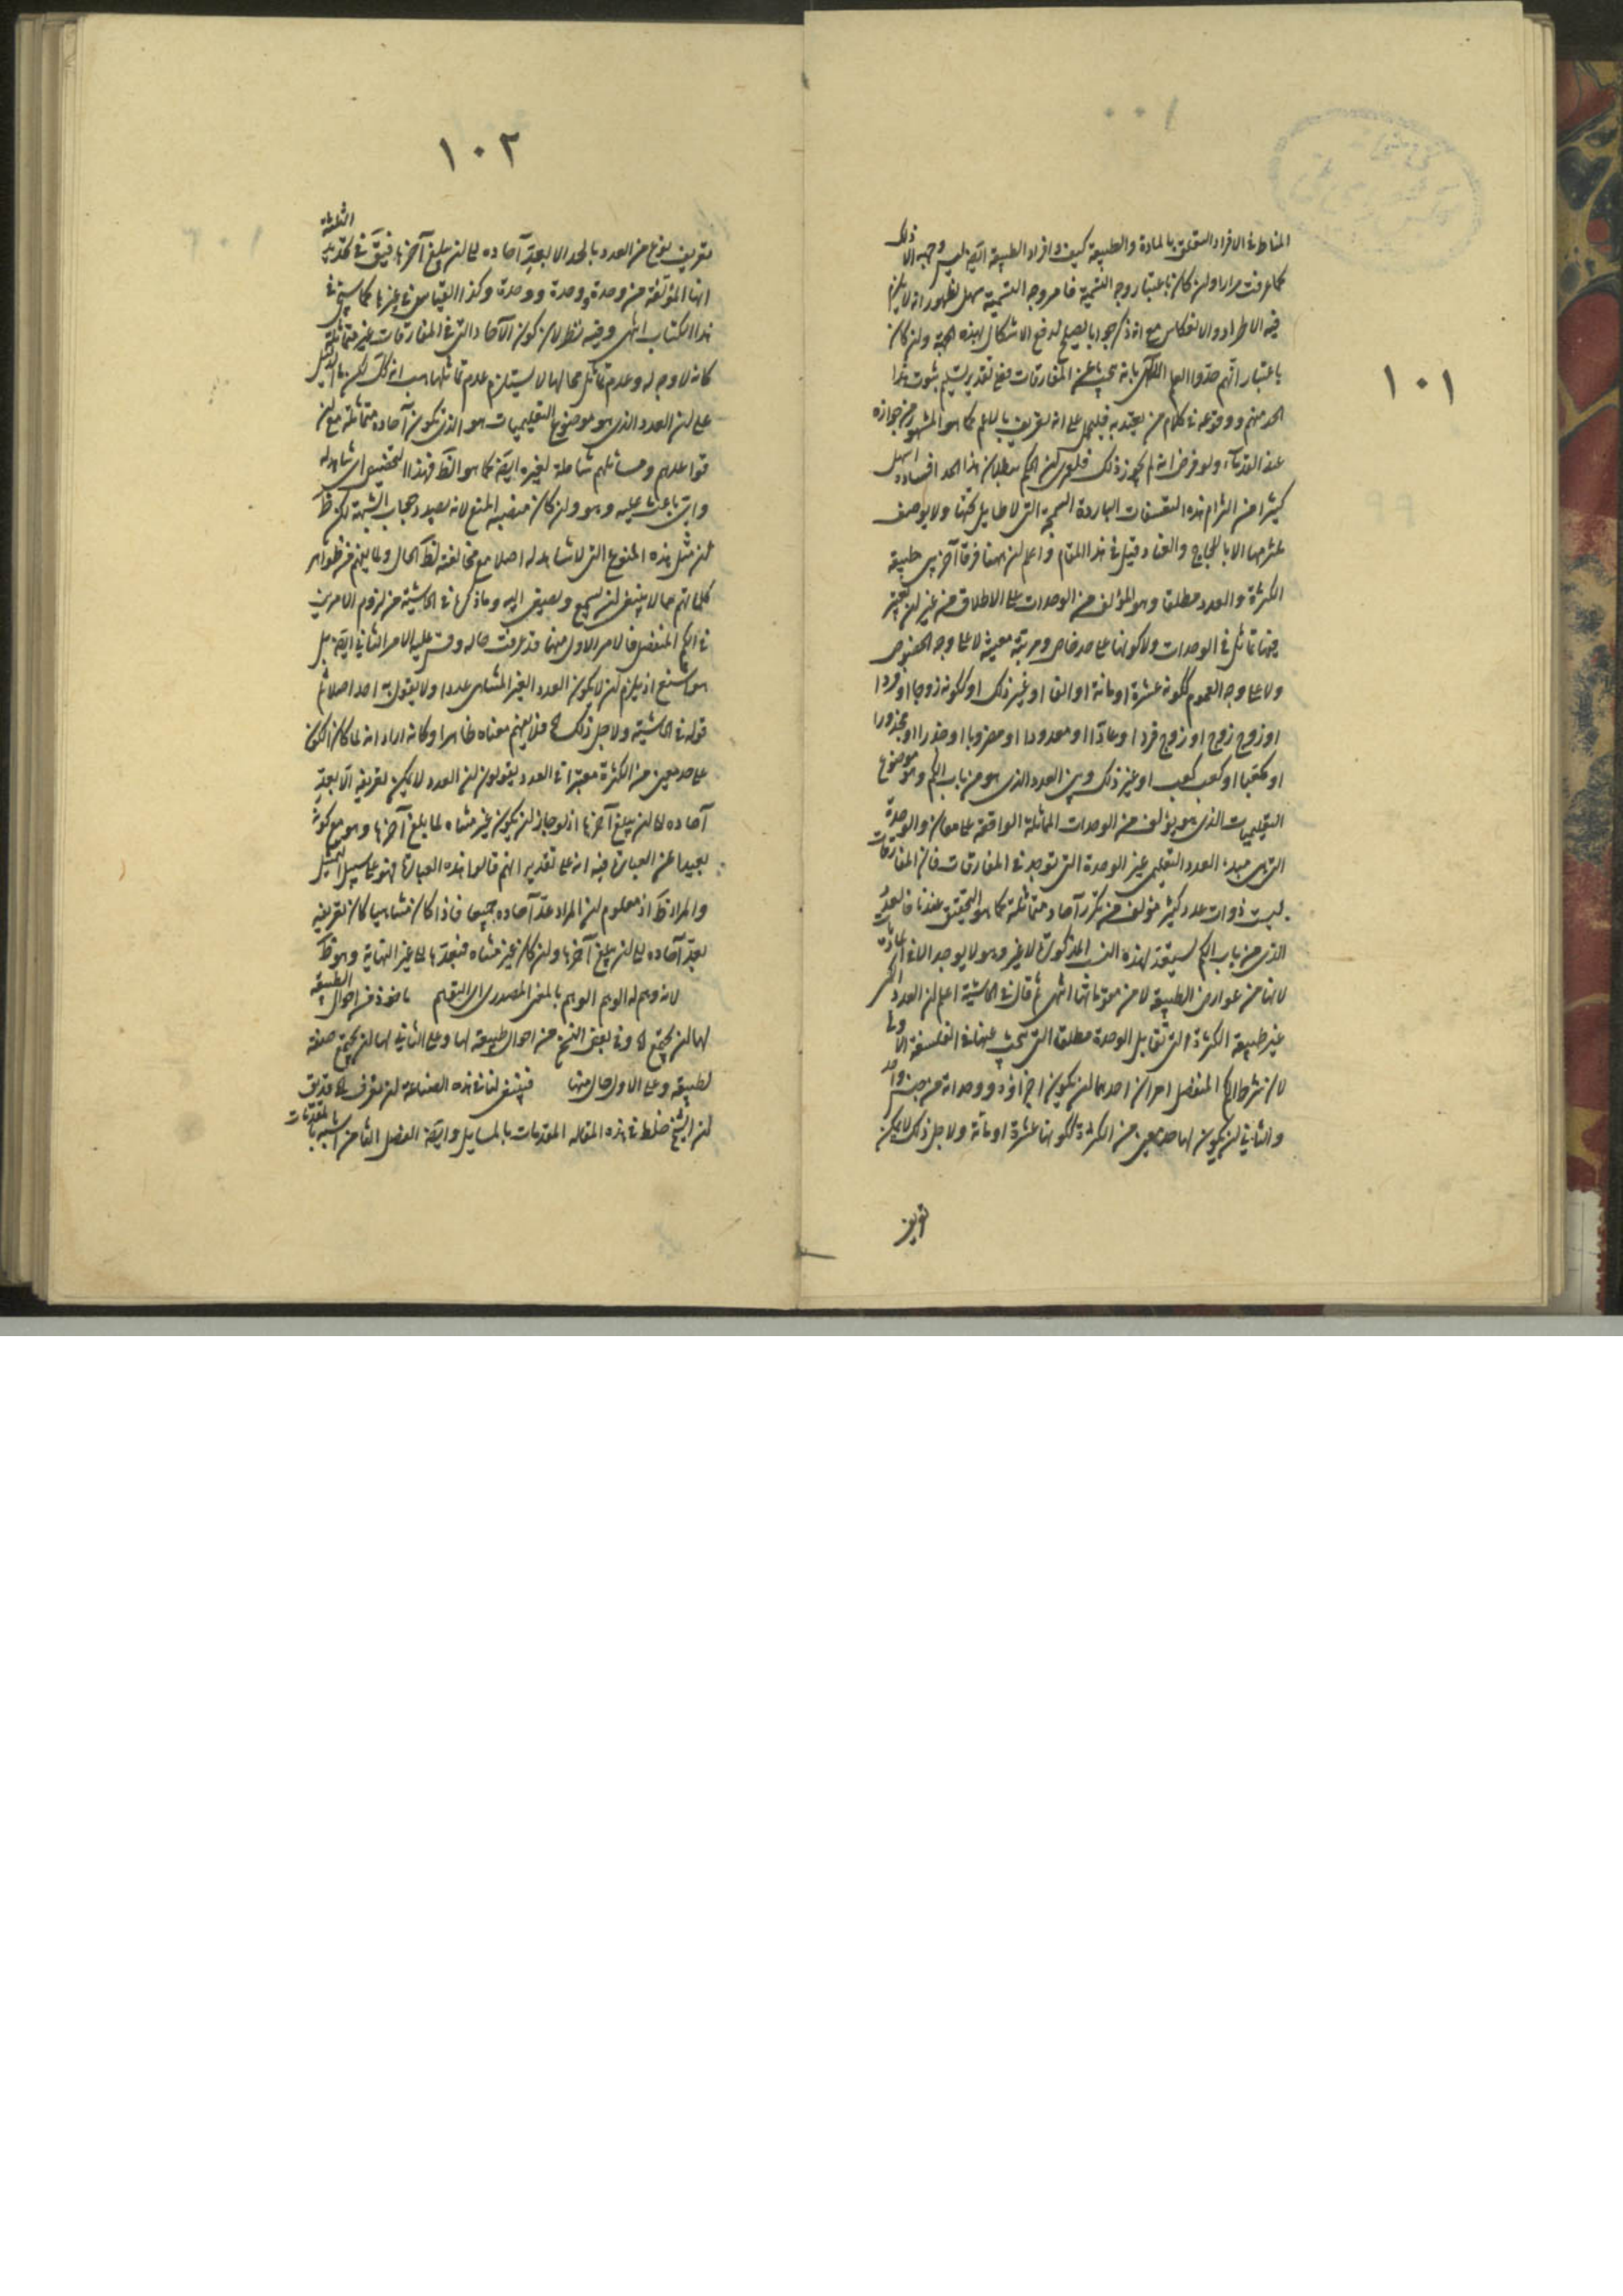 ١٠١
المناط في الافراد المتعلقة بالمادة والطبيعة كيف وافراد الطبيعة ايضا ليس وجهه الا ذلك
كما عرفت مرارا وان كان باعتبار وجه التسمية فامر وجه التسمية سهل لظهور انه لا يلزم
فيه الاطراد والانعكاس مع انه ذكر جوابا يصلح لدفع الاشكال بهذه الجهة وان كان
باعتبار انهم حدوا العلم الالهي بانه يبحث عن المفارقات فمع تقدير تسليم ثبوت هذا
الحد منهم ووقوعه في كلام من يعتد به فليحمل على انه تعريف بالاعم كما هو المشهور من جوازه
عند القدماء ولو فرض انه لم يجوز ذلك فلعمري ان الحكم ببطلان هذا الحد افساده اسهل
كثيرا من التزام هذه التعسفات الباردة السمجة التي لا طايل تحتها ولا يوصف
ملتزمها الا باللجاج والعناد قيل في هذا المقام واعلم ان ههنا فرقا آخر بين طبيعة
الكثرة والعدد مطلقا وهو المؤلف من الوحدات على الاطلاق من غير ان يعتبر
فيها تماثل في الوحدات ولا كونها على حد خاص ومرتبة معينة لا على وجه الخصوص
ولا على وجه العموم ككونه عشرة او مائة او الفا او غير ذلك او ككونه زوجا او فردا
او زوج زوج او زوج فرد او عادّا او معدودا او مضروبا او جذرا او مجذورا
او مكعبا او كعب كعب او غير ذلك وبين العدد الذي هو من باب الكم وموضوع
التعليميات الذي هو يؤلف من الوحدات المماثلة الواقعة على معان والوحدة
التي هي مبدء العدد التعليمي غير الوحدة التي توجد في المفارقات فان المفارقات
ليست ذوات عدد كثير مؤلف من تكرر آحاد متماثلة كما هو التحقيق عندنا فالعدد
الذي من باب الكم يستعد لهذه النسب المذكورة لا غير وهو لا يوجد الا في الماديات
لانها من عوارض الطبيعة لا من مقوماتها انتهى ثم قال في الحاشية اعلم ان العدد الكمي
غير طبيعة الكثرة التي تقابل الوحدة مطلقا التي يبحث عنها في الفلسفة الاولى
لان شرط الكم المنفصل امران احدهما ان يكون اجزاؤه ووحداته من جنس واحد
والثاني ان يكون لها حد معين من الكثرة ككونها عشرة او مائة ولاجل ذلك لا يمكن
تعريف
١٠٢
تعريف نوع من العدد بالحد الا بعد آحاده الى ان يبلغ آخرها فيق في تحديد الثلثة
انها المؤلفة من وحدة ووحدة ووحدة وكذا القياس في غيرها كما سيجئ في
هذا الكتاب انتهى وفيه نظر لان كون الآحاد التي في المفارقات غير متماثلة
كانه لا وجه له وعدم تماثل محالها لا يستلزم عدم تماثلها هب انه كك لكن ما الدليل
على ان العدد الذي هو موضوع التعليميات هو الذي يكون آحاده متماثلة مع ان
قواعدهم ومسائلهم شاملة لغيره ايضا كما هو الظ فهذا التخصيص اي شاهد له
واي باعث عليه وهو وان كان منصبه المنع لانه بصدد جواب الشبهة لكن ظ
ان مثل هذه المنوع التي لا شاهد له اصلا مع مخالفته لظ الحال ولما يفهم من ظواهر
كلماتهم مما لا ينبغي ان يسمع ويصغى اليه وما ذكره في الحاشية من لزوم الامرين
في الكم المنفصل فالامر الاول منهما قد عرفت حاله وقس عليه الامر الثاني ايضا بل
هو اشنع اذ يلزم ان لا يكون العدد الغير المتناهي عددا ولا يقول به احد اصلا ثم
قوله في الحاشية ولاجل ذلك الخ فلا يفهم معناه ظاهرا وكانه اراد انه لما كان الكون
على حد معين من الكثرة معتبرا في العدد يقولون ان العدد لا يمكن تعريفه الا بعد
آحاده الى ان يبلغ آخرها اذ لو جاز ان يكون غير متناه لما بلغ آخرها وهو مع كونه
بعيدا عن العبارة فيه انه على تقدير انهم قالوا هذه العبارة فهو على سبيل التمثيل
والمراد ظ اذ معلوم ان المراد عد آحاده جميعا فاذا كان متناهيا كان تعريفه
بعد آحاده الى ان يبلغ آخرها وان كان غير متناه فبعدها الى غير النهاية وهو ظ
لانه وهم له الوهم الوهم بالمعنى المصدري اي التوهم ماخوذة من احوال الطبيعة
لها ان يجتمع الخ وفي بعض النسخ من احوال طبيعة لها وعلى الثاني لها ان يجتمع صفة
لطبيعة وعلى الاول حال منها فينبغي لنا في هذه الصناعة ان نعرف الخ قد يق
ان الشيخ خلط في هذه المقاله المقدمات بالمسايل وايضا الفصل الثامن اشبه بالمقدمات